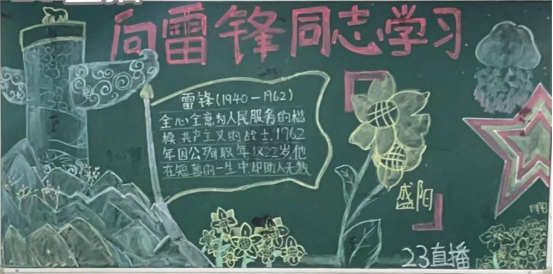 向雷锋同志学习
雷锋(1940-1962)
全心全意为人民服务的楷
模,共产主义的战士,1962
年因公殉职,年仅22岁,他
在短暂的一生中却助人无数
盛阳
23直播